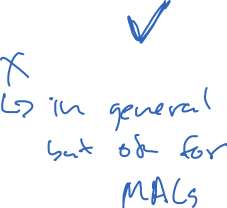 ✓
✗
↳ in general
but ok for
MACs